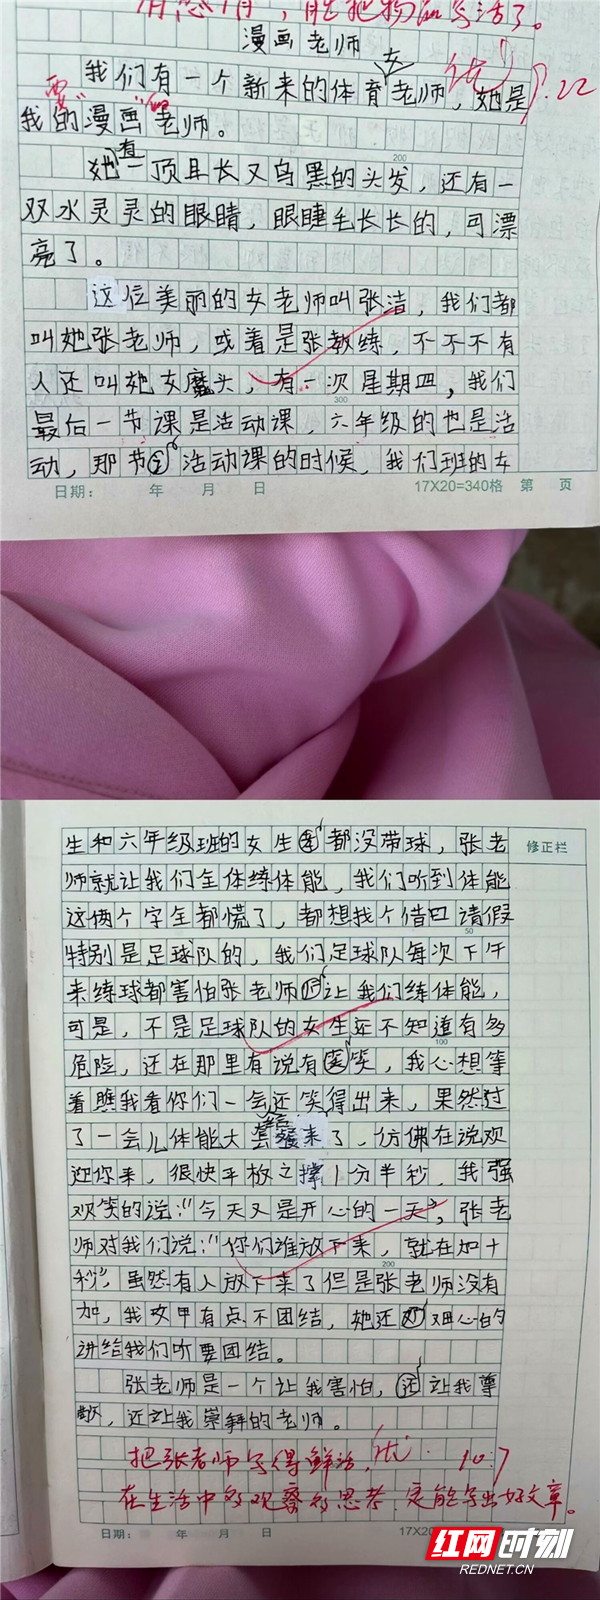 能把物品写活了。
漫画老师
我们有一个新来的体育女老师，她是
我的漫画老师。
她有一顶且长又乌黑的头发，还有一
双水灵灵的眼睛，眼睫毛长长的，可漂
亮了。
这位美丽的女老师叫张洁，我们都
叫她张老师，或着是张教练，不不不有
人还叫她女魔头，有一次星期四，我们
最后一节课是活动课，六年级的也是活
动，那节活动课的时候，我们班的女
日期： 年 月 日 17X20=340格 第 页
生和六年级班的女生都没带球，张老
修正栏
师就让我们全体练体能，我们听到体能
这两个字全都慌了，都想找个借口请假
特别是足球队的，我们足球队每次下午
来练球都害怕张老师让我们练体能，
可是，不是足球队的女生还不知道有多
危险，还在那里有说有笑，我心想等
着瞧我看你们一会还笑得出来，果然过
了一会儿体能大套餐来了，仿佛在说欢
迎你来，很快平板支撑1分半秒，我强
欢笑的说："今天又是开心的一天"，张老
师对我们说："你们谁放下来，就在加十
秒"，虽然有人放下来了但是张老师没有
加，我女甲有点不团结，她还细心的
讲给我们听要团结。
张老师是一个让我害怕，让我尊
敬，还让我崇拜的老师。
把张老师写得鲜活，优 10.7
在生活中多观察多思考，定能写出好文章。
日期： 年 月 日 17X20
红网时刻
REDNET.CN
200
300
50
100
200
优
9.22